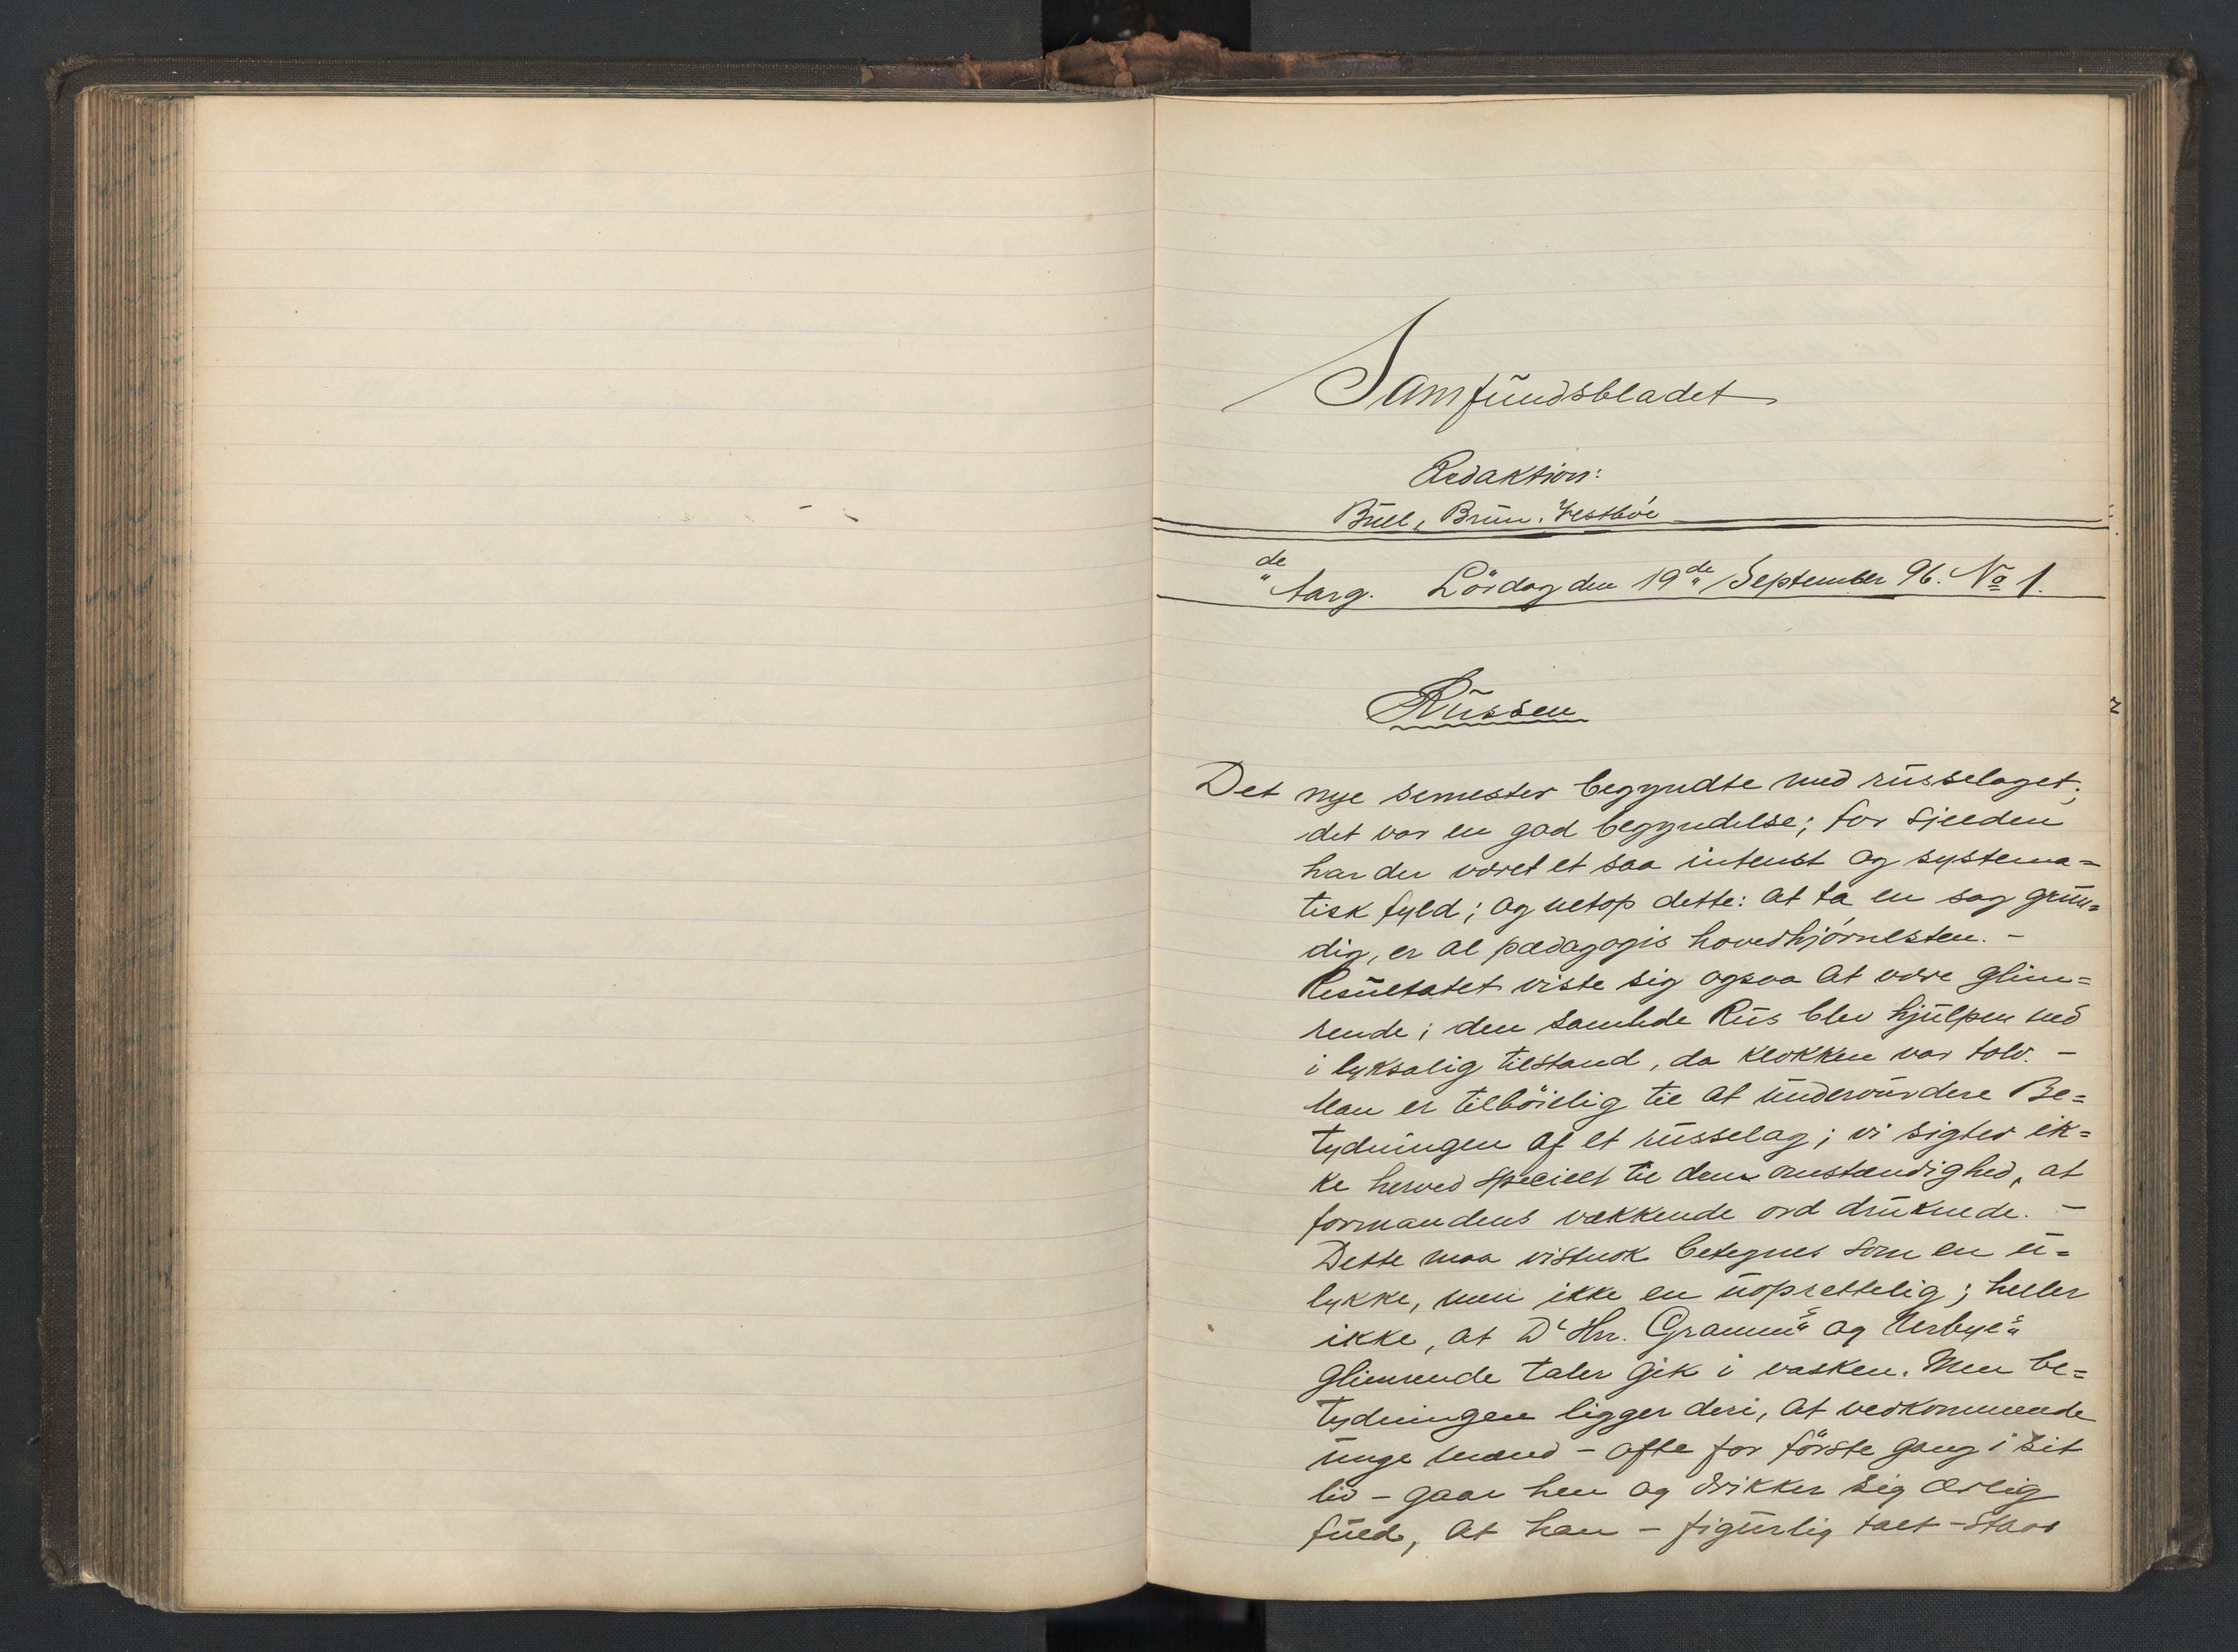 Samfundsbladet
Redaktion:
Bull, Brun. Vestböe
de
" Aarg. Lördag den 19de September 96. No 1.
Russen
Det nye semester begyndte med russelaget;
det var en god begyndelse; for sjelden
har der været et saa intenst og systema=
tisk fyld; og netop dette: at ta en sag grun=
dig, er al pædagogis hovedhjörnesten. -
Resultatet viste sig ogsaa at være glim=
rende; den samlede Rus blev hjulpen ned
i lyksalig tilstand, da klokken var tolv. -
Man er tilböielig til at undervurdere Be=
tydningen af et russelag; vi sigter ik=
ke herved specielt til den omstændighed, at
formandens vækkende ord druknede. -
Dette maa vistnok betegnes som en u=
lykke, men ikke en uoprettelig; heller
ikke, at D'Hrr. Gramms og Urbyes
glimrende taler gik i vasken. Men be=
tydningen ligger deri, at vedkommende
unge mand - ofte for förste gang i sit
liv - gaar hen og drikker sig ærlig
fuld, at han - figurlig talt - staar